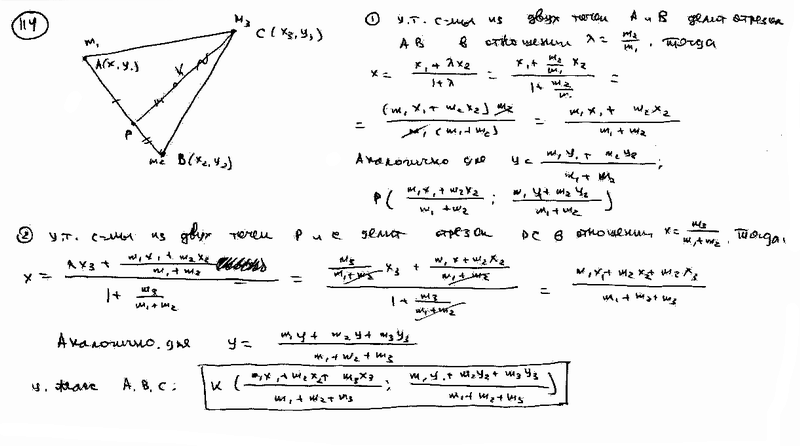 114
m₁
A(x₁y₁)
m₃
C(x₃, y₃)
K
P
m₂ B(x₂, y₂)
① ц.т. с-мы из двух точек A и B делит отрезок
AB в отношении λ = m₂/m₁. Тогда
x = (x₁ + λx₂)/(1 + λ) = (x₁ + (m₂/m₁) x₂)/(1 + m₂/m₁) =
= (m₁x₁ + m₂x₂) m₁/(m₁(m₁ + m₂)) = (m₁x₁ + m₂x₂)/(m₁ + m₂)
Аналогично для y = (m₁y₁ + m₂y₂)/(m₁ + m₂);
P((m₁x₁ + m₂x₂)/(m₁ + m₂); (m₁y₁ + m₂y₂)/(m₁ + m₂))
② ц.т. с-мы из двух точек P и C делит отрезок PC в отношении λ = m₃/(m₁ + m₂). Тогда:
x = (λx₃ + (m₁x₁ + m₂x₂)/(m₁ + m₂))/(1 + m₃/(m₁ + m₂)) = ((m₃/(m₁ + m₂)) x₃ + (m₁x₁ + m₂x₂)/(m₁ + m₂))/(1 + m₃/(m₁ + m₂)) = (m₁x₁ + m₂x₂ + m₃x₃)/(m₁ + m₂ + m₃)
Аналогично для y = (m₁y + m₂y + m₃y₃)/(m₁ + m₂ + m₃)
ц. масс A, B, C: K((m₁x₁ + m₂x₂ + m₃x₃)/(m₁ + m₂ + m₃); (m₁y₁ + m₂y₂ + m₃y₃)/(m₁ + m₂ + m₃))